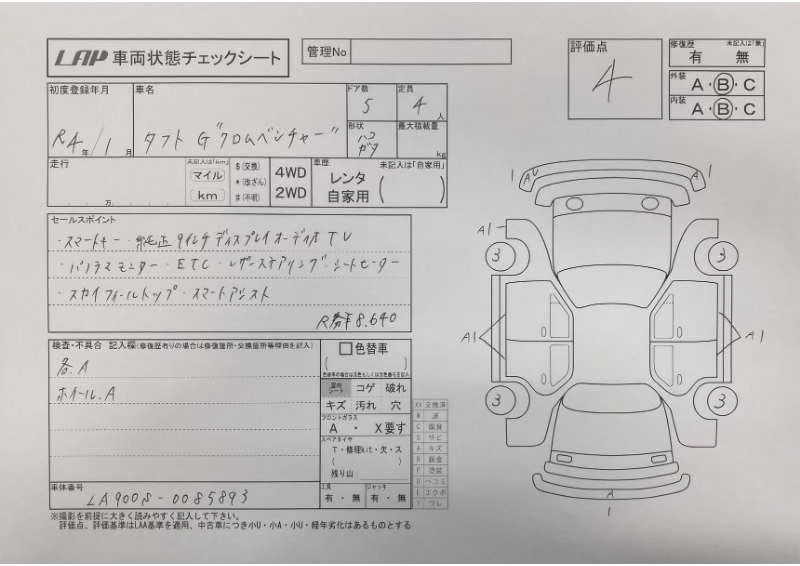 LAA 車両状態チェックシート
管理No
評価点
4
修復歴 未記入は「無」
有 無
外装 A・B・C
内装 A・B・C
初度登録年月
R4年/1月
車名
タフト G"クロムベンチャー"
ドア数
5
定員
4人
形状
ハコ
ガタ
最大積載量
kg
走行
万
未記入は「km」
マイル
km
$(交換)
*(改ざん)
#(不明)
4WD
2WD
車歴 未記入は「自家用」
レンタ
自家用
セールスポイント
・スマートキー・純正9インチディスプレイオーディオTV
・パノラマモニター・ETC・レザーステアリング・シートヒーター
・スカイフィールトップ・スマートアシスト
R券¥8.640
検査・不具合 記入欄(修復歴有りの場合は修復箇所・交換箇所等詳細を記入)
各.A
ホイール.A
色替車
コゲ 破れ
キズ 汚れ 穴
フロントガラス
A ・ X要す
スペアタイヤ
T・修理kit・欠・ス
残り山
工具
有・無
ジャッキ
有・無
車体番号
LA900S-0085893
※撮影を前提に大きく読みやすく記入して下さい。
評価点、評価基準はLAA基準を適用、中古車につき小U・小A・小U・経年劣化はあるものとする
1
AU
A
1
A1
3
3
A1
A1
3
3
A
1